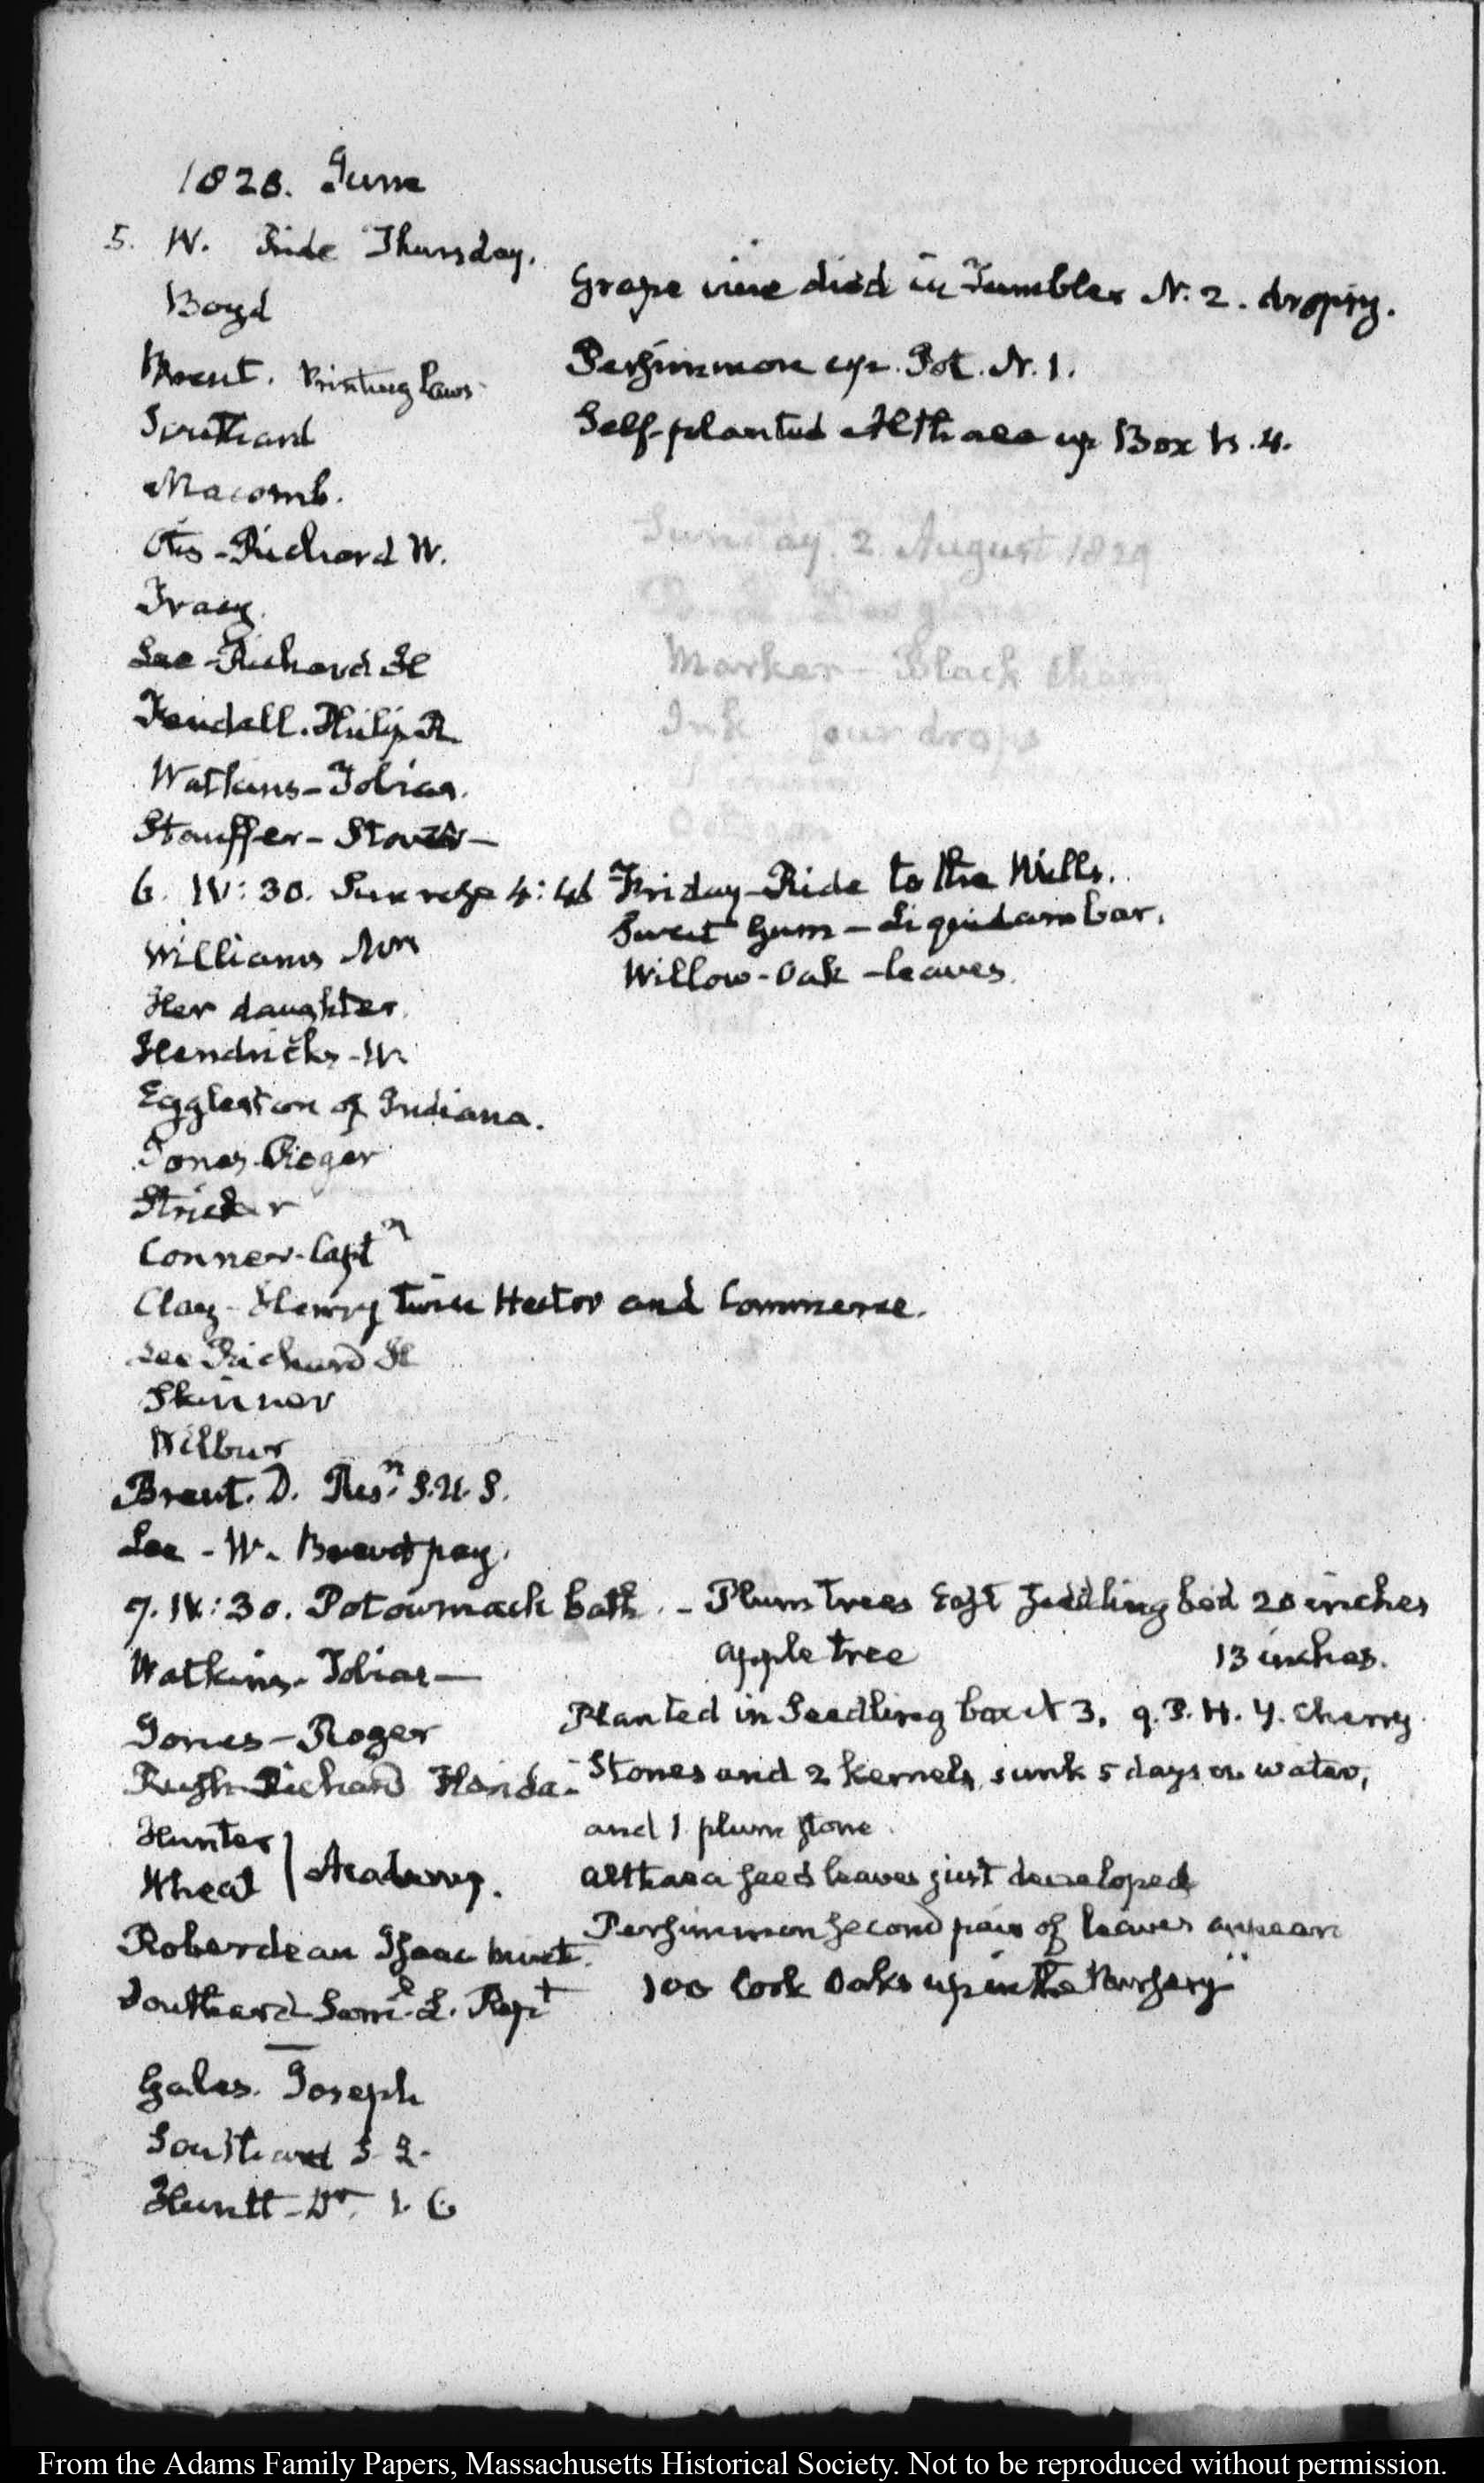 1828. June
5. IV. Ride Thursday.
Boyd
Grape vine died in Tumbler N. 2. dropsy.
Brent. Printing Laws
Persimmon up. Pot. N. 1.
Southard
Self-planted Althaea up Box N. 4.
Macomb.
Otis - Richard W.
Sunday. 2. August 1829
Tracy.
Lee - Richard H
Marker - Black
Fendall. Philip R.
Ink four drops
Watkins - Tobias.
Stouffer - Stover -
Octagon
6. IV: 30. Sun rose 4:46 Friday - Ride to the Mills.
Sweet Gum - Liquidambar.
Williams Mrs
Willow - Oak - leaves.
Her daughter.
Hendricks - W.
Eggleston of Indiana.
Jones. Roger
Stricker
Conner - Captn
Clay - Henry twice Hector and Commerce.
Lee Richard H
Skinner
Wilbur
Brent. D. Resn. S.U.S.
Lee - W. Brevet pay.
7. IV: 30. Potowmack bath. - Plum trees East Seedling bed 20 inches
apple tree 13 inches.
Watkins. Tobias -
Planted in Seedling box N 3, 9. P. H. Y. Cherry
Jones - Roger
Stones and 2 kernels, sunk 5 days in water,
Rush Richard Florida.
and 1 plum stone.
Hunter
Wheat } Academy.
althaea seed leaves just developed
Persimmon second pair of leaves appear
Roberdeau Isaac
100 Cork Oaks up in the Nursery
Southard Saml. L. Rept
Gales. Joseph
Southard S. L.
Huntt - Dr.
From the Adams Family Papers, Massachusetts Historical Society. Not to be reproduced without permission.